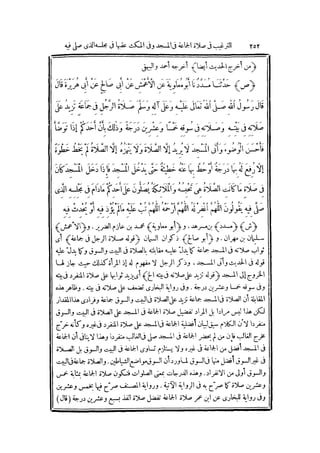 ٢٥٢ الترغيب فى صلاة الجماعة فى المسجد وفى المكث عقبها فى مجلسه الذى صلى فيه
﴿من أخرج الحديث أيضا﴾ أخرجه أحمد والبيهقى
﴿ص﴾ حدثنا مسدد نا أبو معاوية عن الأعمش عن أبى صالح عن أبى هريرة قال
قال رسول الله صلى الله تعالى عليه وعلى آله وسلم صلاة الرجل فى جماعة تزيد على
صلاته فى بيته وصلاته فى سوقه خمسا وعشرين درجة وذلك بأن أحدكم إذا توضأ
فأحسن الوضوء وأتى المسجد لا يريد إلا الصلاة ولا ينهزه إلا الصلاة لم يخط خطوة
إلا رفع له بها درجة أو حط بها عنه خطيئة حتى يدخل المسجد فإذا دخل المسجد كان
فى صلاة ما كانت الصلاة هى تحبسه والملائكة يصلون على أحدكم ما دام فى مجلسه الذى
صلى فيه يقولون اللهم اغفر له اللهم ارحمه اللهم تب عليه ما لم يؤذ فيه أو يحدث فيه
﴿ش﴾ ﴿مسدد﴾ بن مسرهد. و﴿أبو معاوية﴾ محمد بن خازم الضرير. و﴿الأعمش﴾
سليمان بن مهران. و﴿أبو صالح﴾ ذكوان السمان ﴿قوله صلاة الرجل فى جماعة﴾ أى
ثواب صلاته فى المسجد جماعة كما يدل عليه مقابلته بالصلاة فى البيت والسوق وكما يدل عليه
قوله فى الحديث وأتى المسجد. وذكر الرجل لا مفهوم له إذ المرأة كذلك حيث جاز لها
الخروج إلى المسجد ﴿قوله تزيد على صلاته فى بيته الخ﴾ أى يزيد ثوابها على صلاة المنفرد فى بيته
وفى سوقه خمسا وعشرين درجة. وفى رواية البخارى تضعف على صلاته فى بيته. وظاهر هذه
المقابلة أن الصلاة فى المسجد جماعة تزيد على الصلاة فى البيت والسوق جماعة وفرادى هذا المقدار
لكن هذا ليس مرادا بل المراد تفضيل صلاة الجماعة فى المسجد على الصلاة فى البيت والسوق
منفردا لأن الكلام سيق لبيان أفضلية الجماعة فى المسجد على صلاة المنفرد فى غيره وكأنه خرج
مخرج الغالب فإن من لم يحضر الجماعة فى المسجد صلى فى الغالب منفردا وهذا لا ينافى أن الجماعة
فى المسجد أفضل من الجماعة فى غيره ولا يستلزم تساوى الجماعة فى البيت والسوق بل الصلاة
فى غير السوق أفضل منها فى السوق لما ورد أن السوق مواضع الشياطين. والصلاة جماعة فى البيت
والسوق أولى من الانفراد. وهذه الدرجات بمعنى الصلوات فتكون صلاة الجماعة بمثابة خمس
وعشرين صلاة كما صرح به فى الرواية الآتية. ورواية المصنف صرح فيها بخمس وعشرين
وفى رواية للبخارى عن ابن عمر صلاة الجماعة تفضل صلاة الفذ بسبع وعشرين درجة ﴿قال﴾